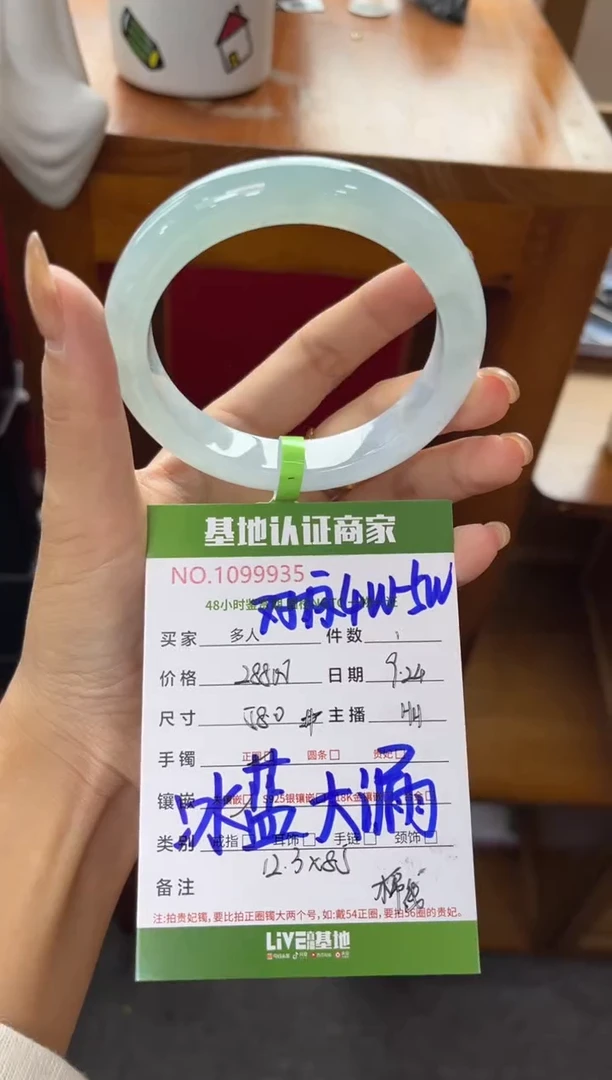 基地认证商家
NO.1099935
48小时鉴
4W-5W
买家 多人 件数 1
价格 日期 9.24
尺寸 580 主播 HH
手镯 正圈□ 圆条□ 贵妃□
镶嵌 S925银镶嵌□ 18K金镶嵌
冰蓝大漏
类别 戒指□ 耳饰□ 手链□ 颈饰□
12.3X85
备注 棉
注:拍贵妃镯,要比拍正圈镯大两个号,如:戴54正圈,要拍56圈的贵妃。
LiVE直播基地